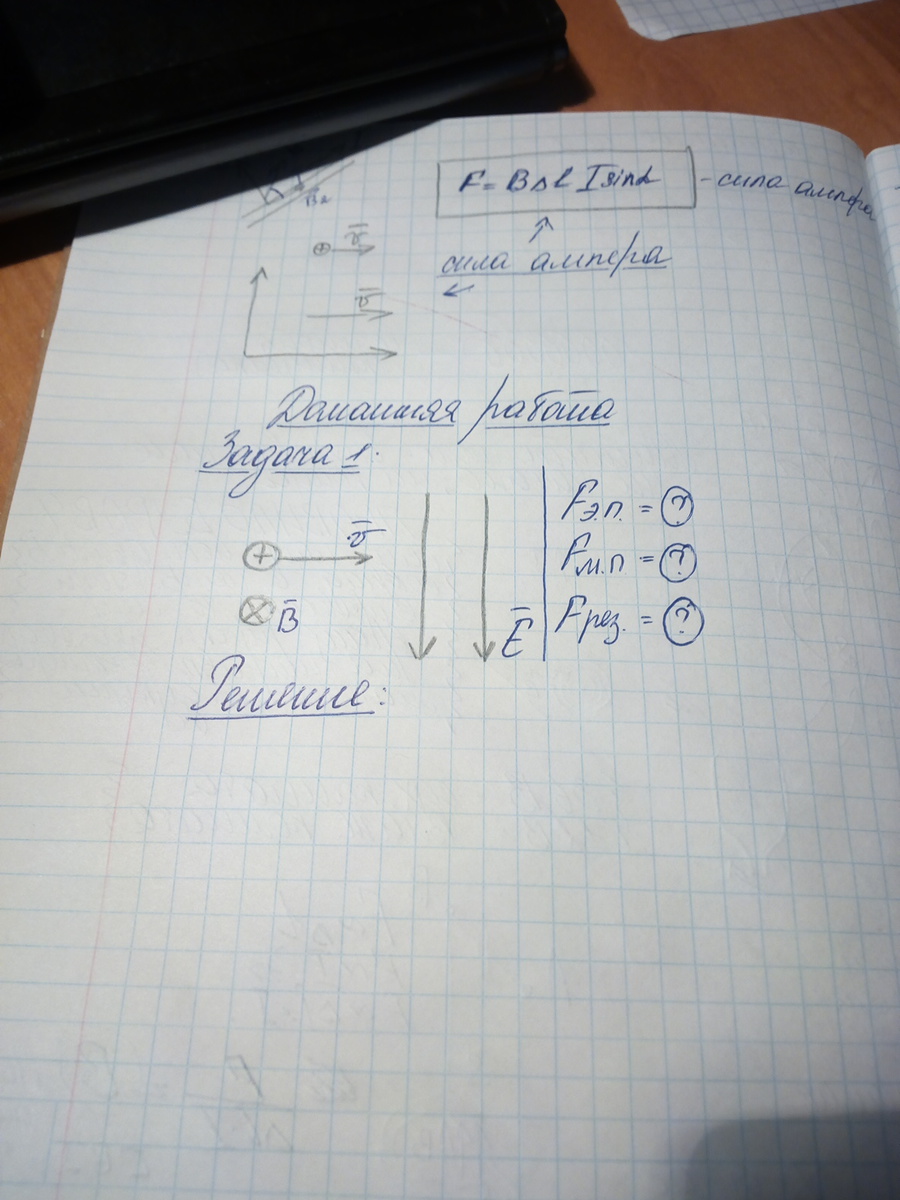 B₂
F = BΔl I sinα - сила ампера
v̄
сила ампера
v̄
Домашняя работа
Задача 1.
v̄
B̄
Ē
Fэ.п. = ?
Fм.п = ?
Fрез. = ?
Решение: